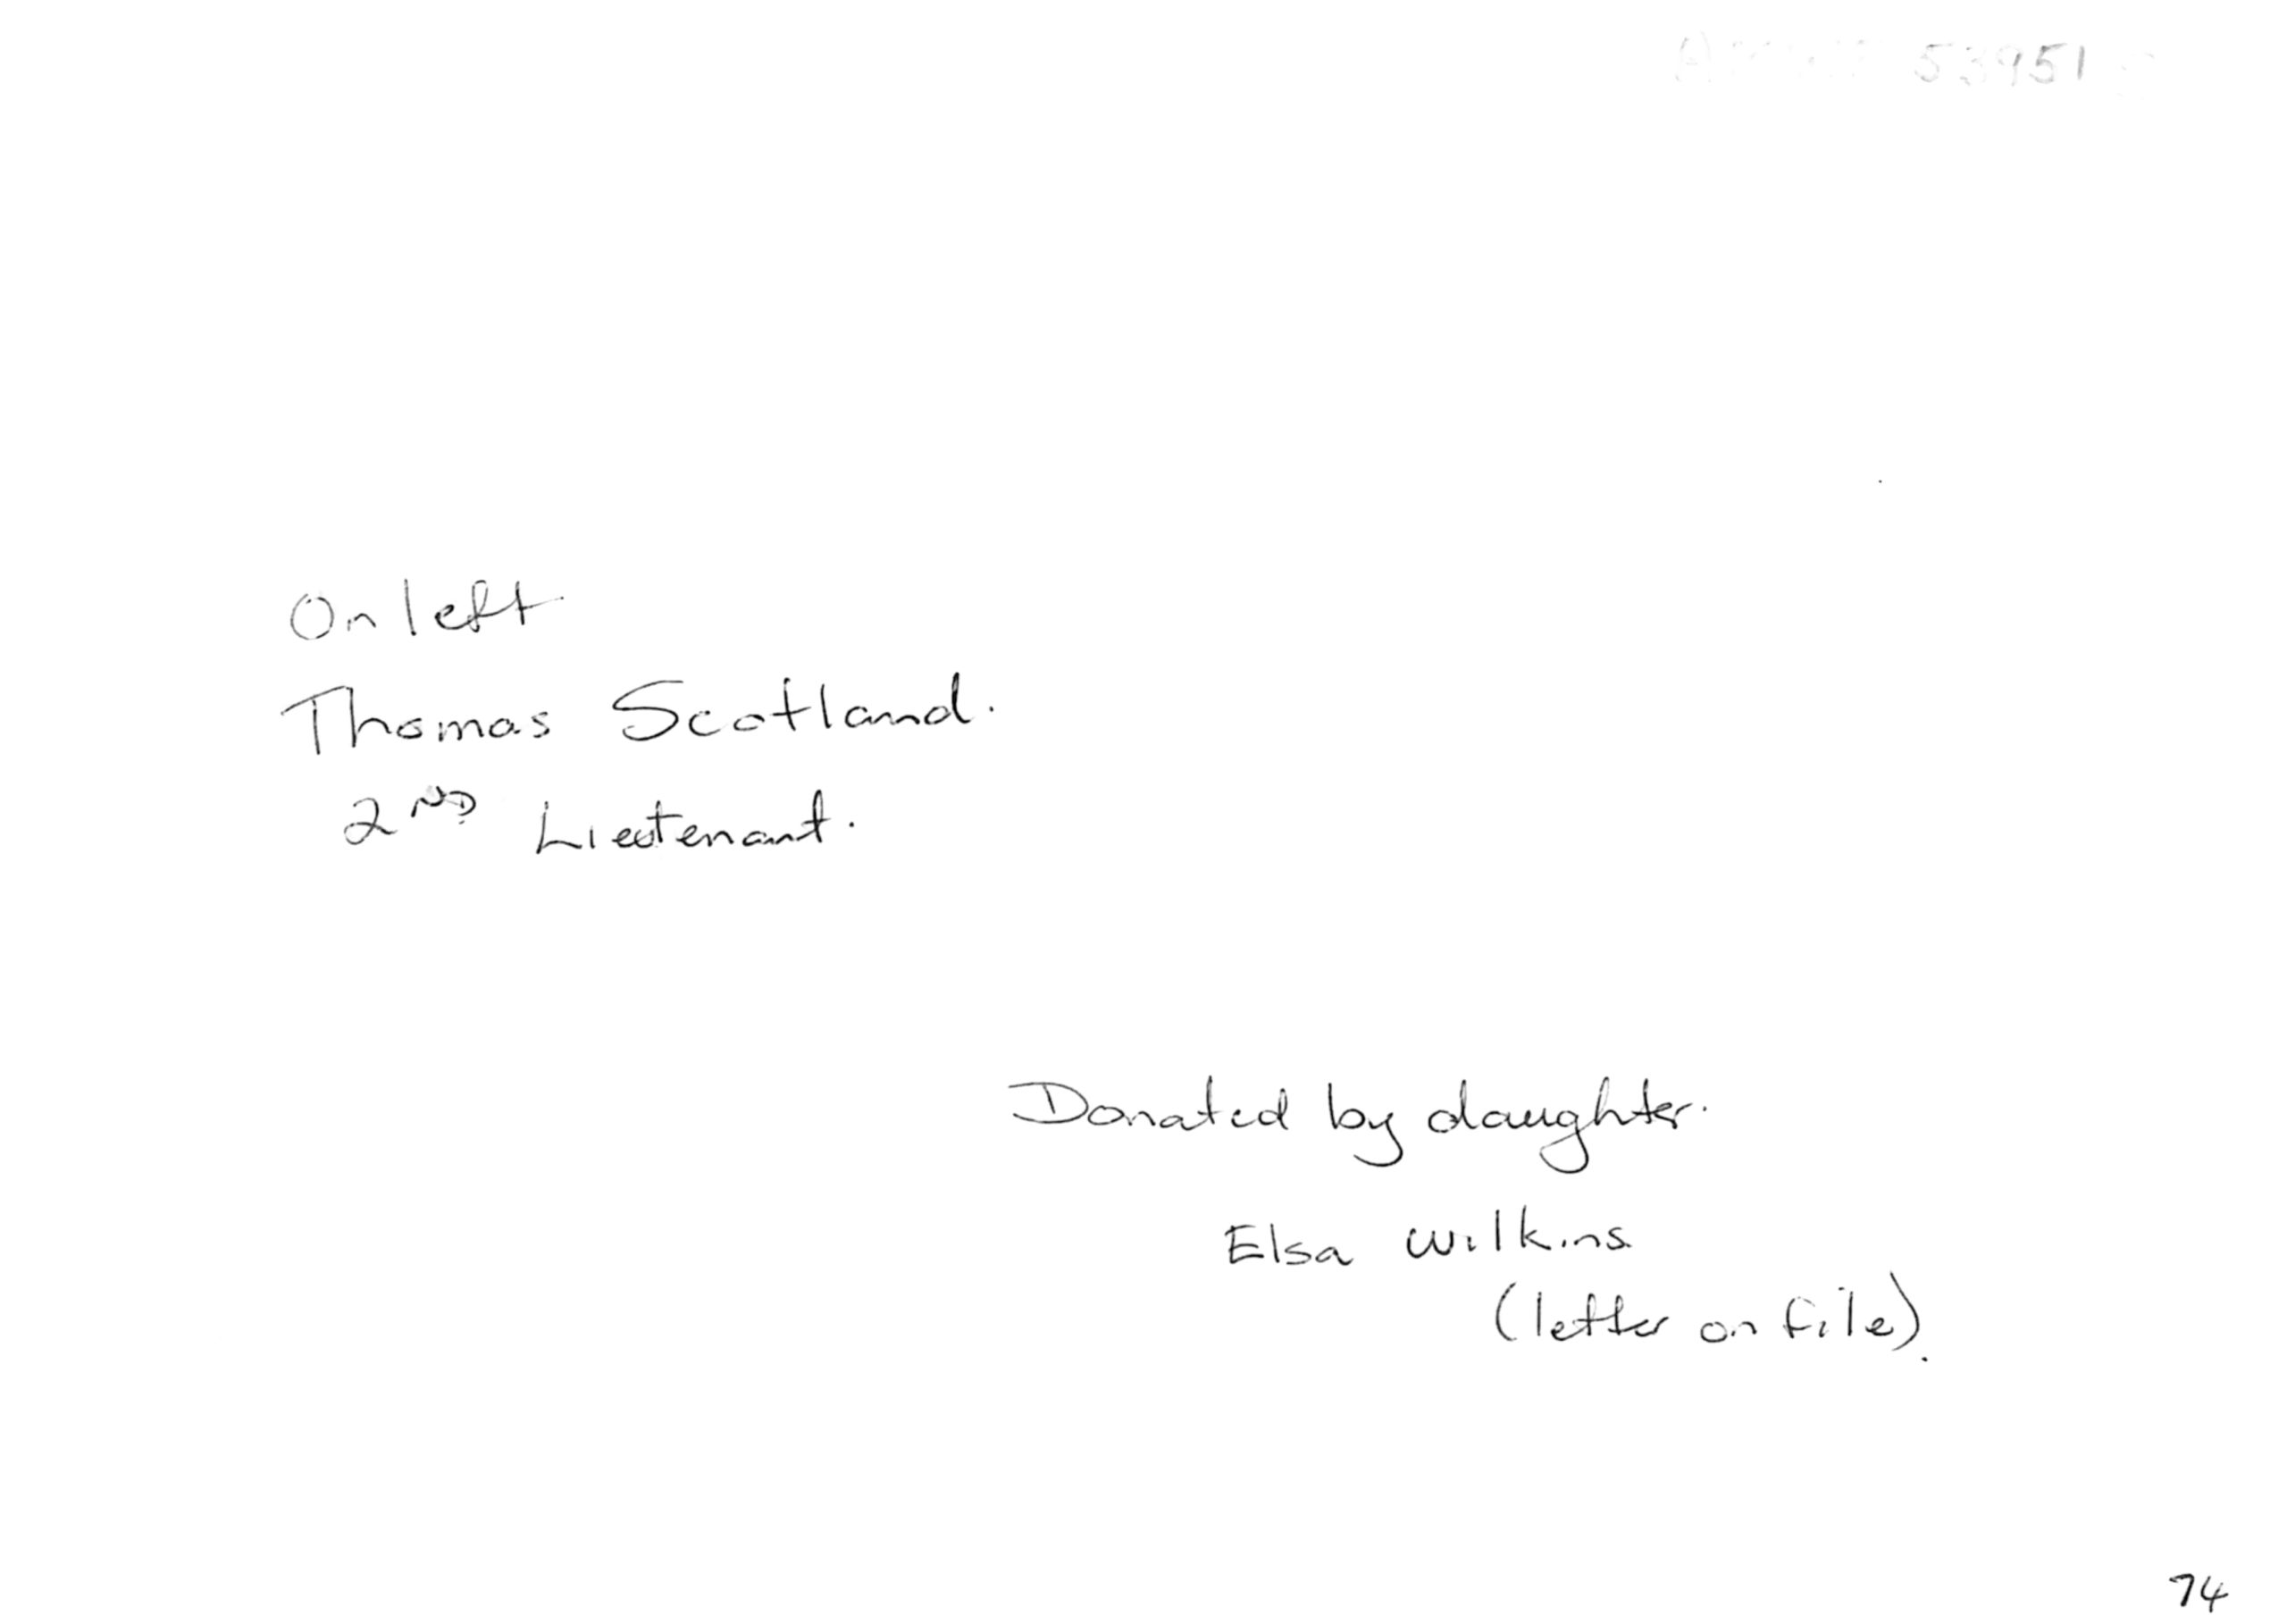 53951
On left
Thomas Scotland.
2ND Lieutenant.
Donated by daughter.
Elsa Wilkins
(letter on file).
74